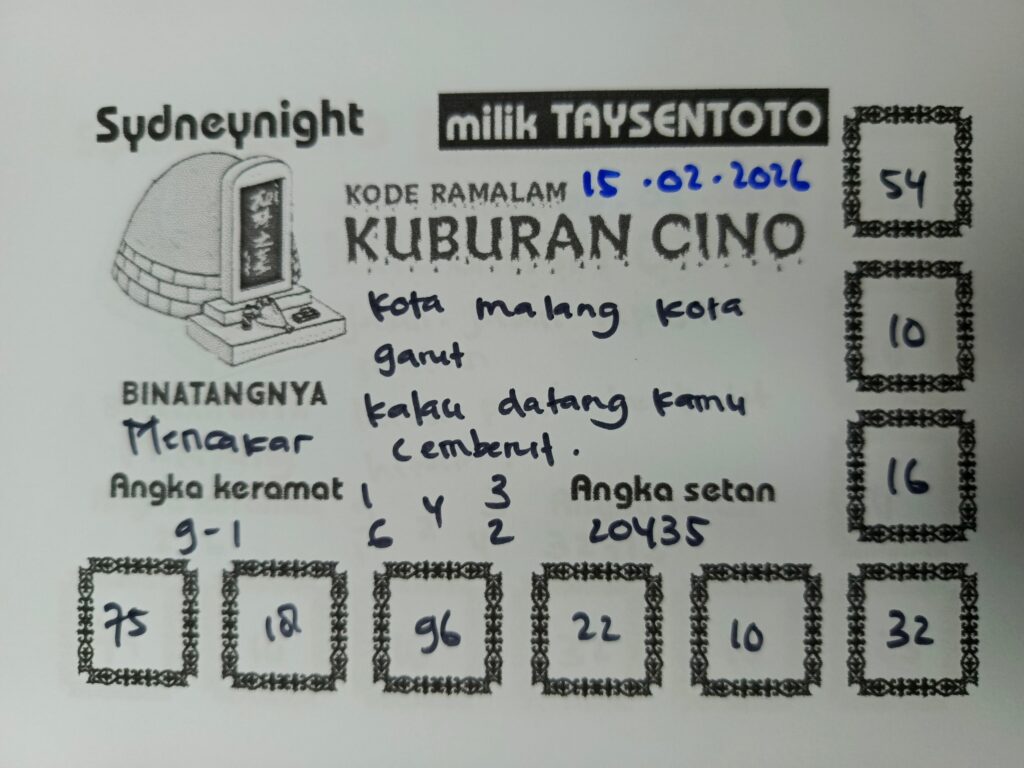 Sydneynight
milik TAYSENTOTO
KODE RAMALAM 15.02.2026
KUBURAN CINO
Kota malang kota
garut
Kalau datang kamu
cemberut.
BINATANGNYA
Mencakar
Angka keramat
9-1
1 3
4
6 2
Angka setan
20435
54
10
16
75 18 96 22 10 32